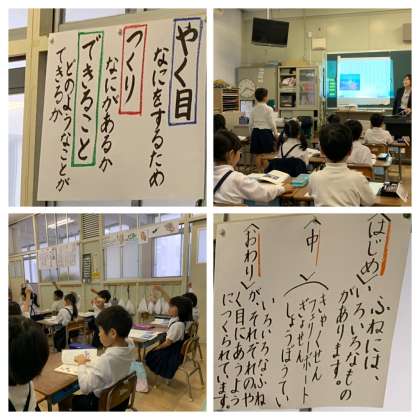 やく目
なにをするため
つくり
なにがあるか
できること
どのようなことが
できるか
〈はじめ〉ふねには、
いろいろなもの
があります。
〈中〉
きゃくせん
フェリーボート
ぎょせん
しょうぼうてい
〈おわり〉
いろいろなふね
がそれぞれのや
く目にあうよう
につくられています。